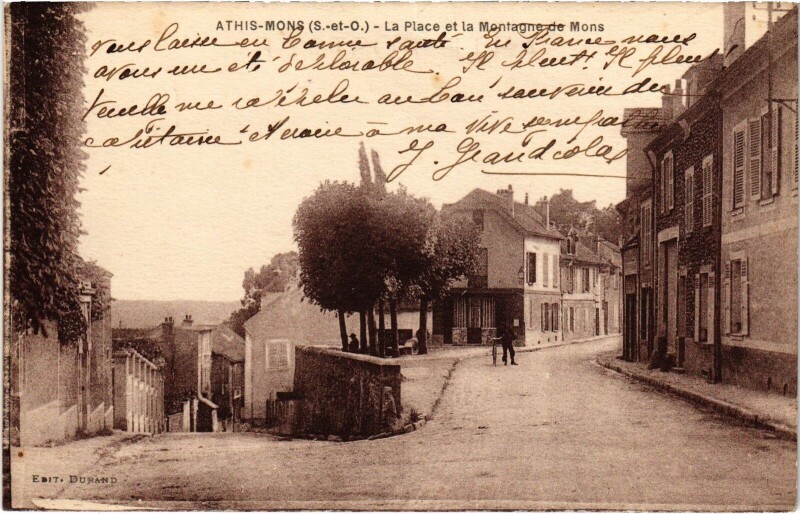 ATHIS-MONS (S.-et-O.) - La Place et la Montagne de Mons
vous laisse en bonne santé. En France nous
avons un été déplorable. Il pleut! Il pleut!
Veuille me rappeler au bon souvenir du
capitaine et croire à ma vive sympathie
J. Grandcolas
EDIT. DURAND